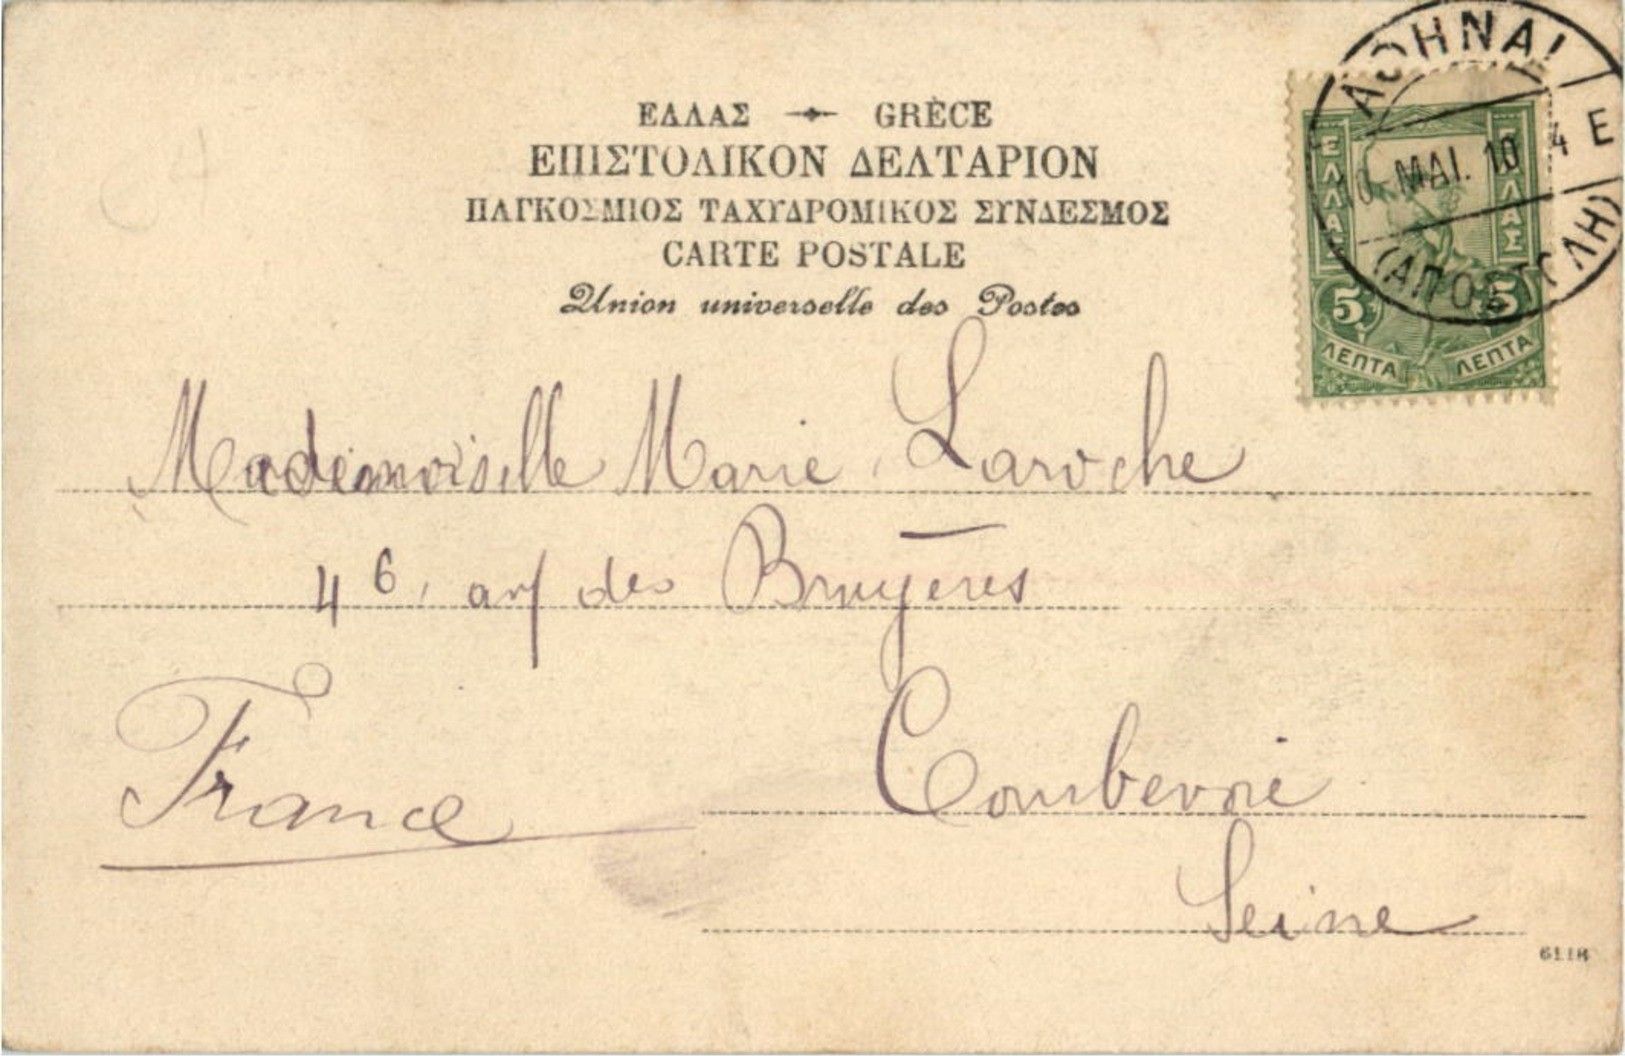 ΕΛΛΑΣ GRÈCE
ΕΠΙΣΤΟΛΙΚΟΝ ΔΕΛΤΑΡΙΟΝ
ΠΑΓΚΟΣΜΙΟΣ ΤΑΧΥΔΡΟΜΙΚΟΣ ΣΥΝΔΕΣΜΟΣ
CARTE POSTALE
Union universelle des Postes
ΑΘΗΝΑΙ
10. ΜΑΙ. 10 4 Ε
(ΑΠΟΣΤΟΛΗ)
ΕΛΛΑΣ ΕΛΛΑΣ
5 5
ΛΕΠΤΑ ΛΕΠΤΑ
Mademoiselle Marie Laroche
46, des Bruyères
France Courbevoie
Seine